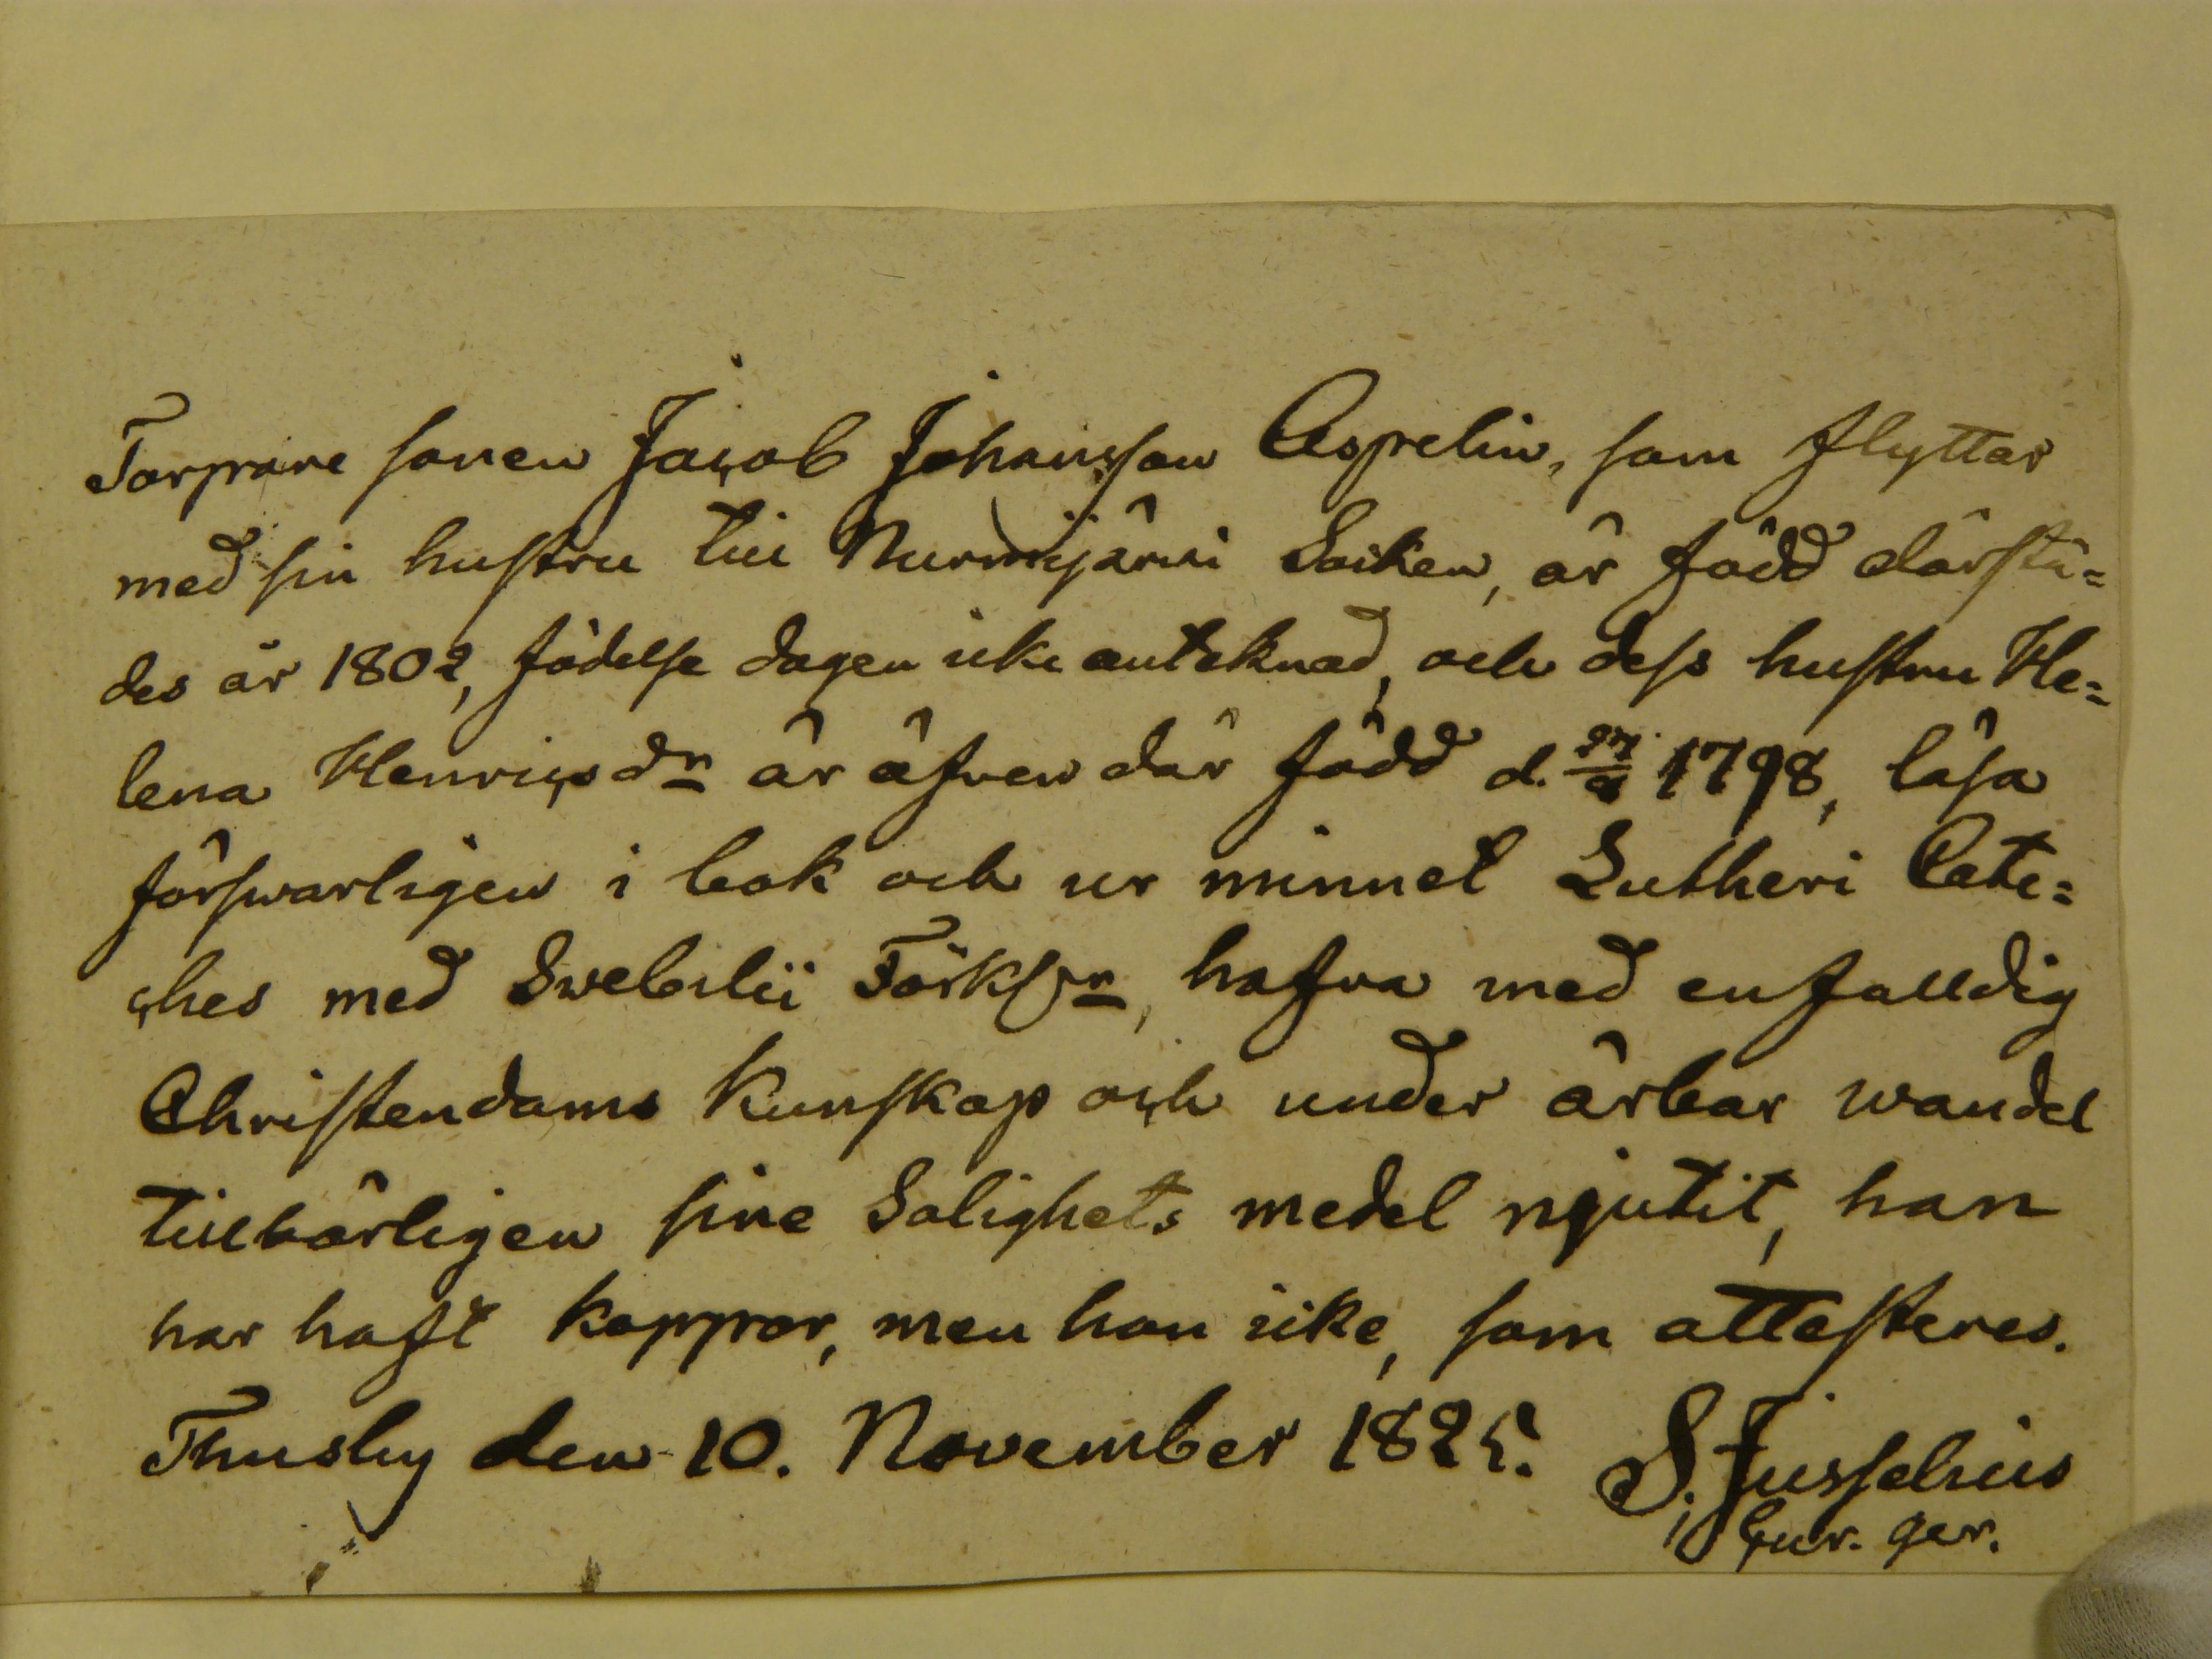 Torpare sonen Jacob Johansson Aspelin, som flyttar
med sin hustru till Nurmijärwi Soiken, är född därstä=
des år 1802, födelse dagen icke anteknad, och dess hustru He=
lena Henricsdr är äfven där född d. 27/9 1798, läsa
försvarligen i bok och ur minnet Lutheri Cate=
ches med Swebilii Förklr, hafva med enfalldig
Christendoms Kunskap och under ärbar wandel
tillbörligen sine Salighets medel njutit, han
har haft koppor, men hon icke, som attesteres.
Thusby den 10. November 1825. S. Jusselius
Cur. ger.